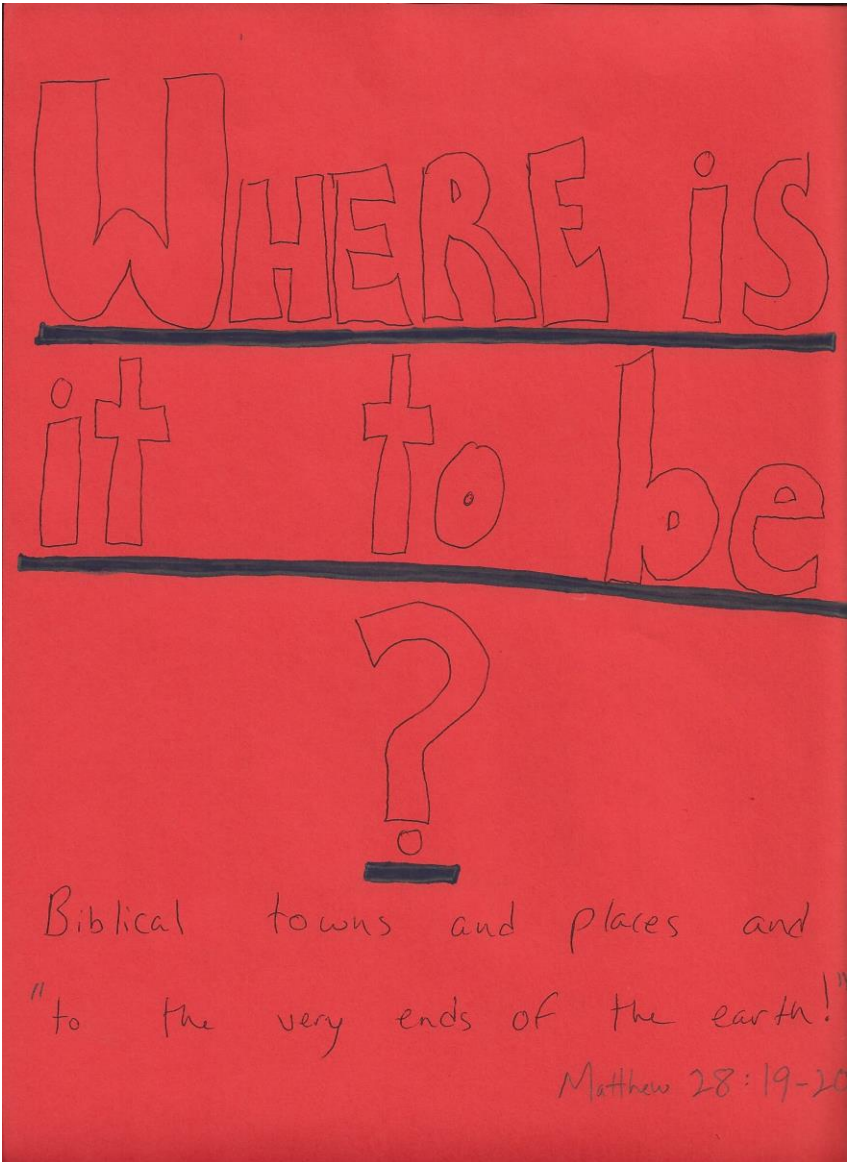 WHERE is
it to be
?
Biblical towns and places and
"to the very ends of the earth!"
Matthew 28:19-20